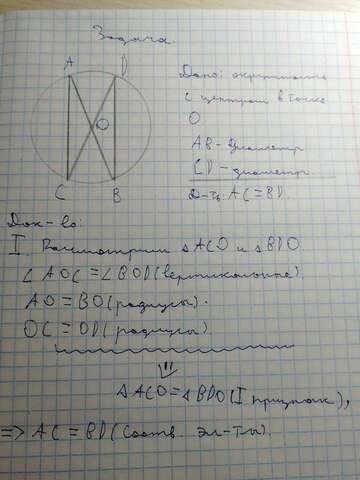 Задача.
A D
O
C B
Дано: окружность
с центром в точке
O
AB - диаметр
CD - диаметр.
Д-ть: AC = BD.
Док-во:
I. Рассмотрим △ ACO и △ BDO
∠ AOC = ∠ BOD (вертикальные).
AO = BO (радиусы).
OC = OD (радиусы).
⇓
△ ACO = △ BDO (I признак),
=> AC = BD (соотв. эл-ты).